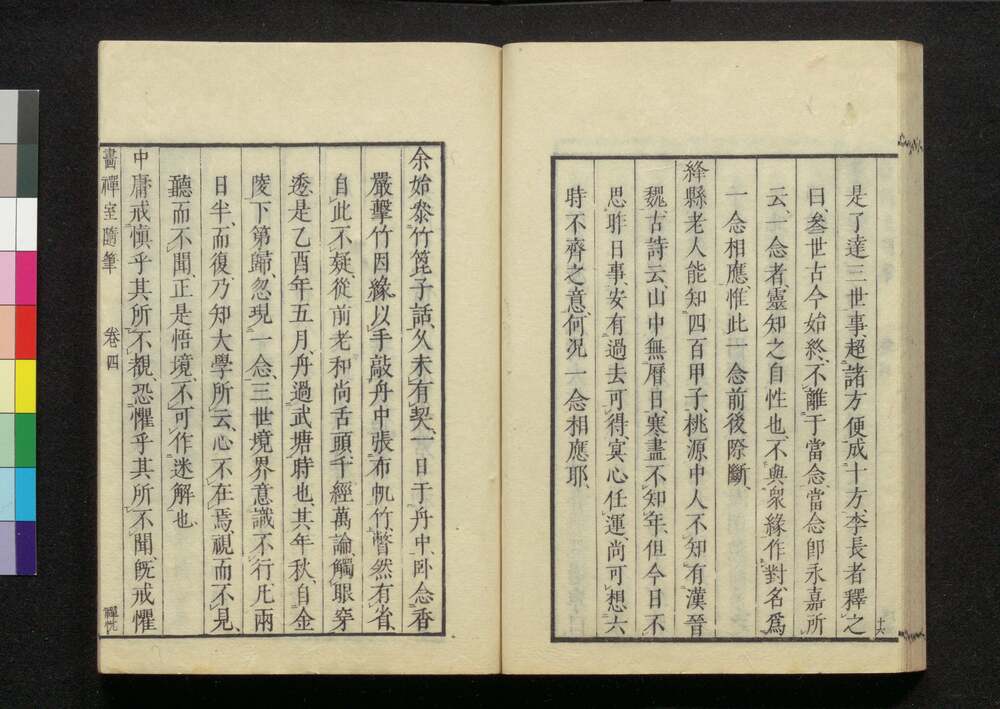 是了達三世事、超諸方便成十方、李長者釋之
曰、叅世古今始終、不離于當念、當念卽永嘉所
云、一念者、靈知之自性也、不與衆緣作對、名爲
一念相應、惟此一念前後際斷、
絳縣老人能知四百甲子、桃源中人不知有漢晉
魏、古詩云、山中無曆日、寒盡不知年、但今日不
思昨日事、安有過去可得、冥心任運、尚可想六
時不齊之意、何况一念相應耶、
十六
余始叅竹箆子話、久未有契、一日于舟中臥念香
嚴擊竹因緣、以手敲舟中張布帆竹、瞥然有省、
自此不疑、從前老和尚舌頭、千經萬論、觸眼穿
透、是乙酉年五月、舟過武塘時也、其年秋、自金
陵下第歸、忽現一念、三世境界意識不行、凡兩
日半、而復、乃知大學所云、心不在焉、視而不見、
聽而不聞、正是悟境、不可作迷解也、
中庸戒愼乎其所不覩、恐懼乎其所不聞、旣戒懼
畵禪室隨筆 卷四
禪悅